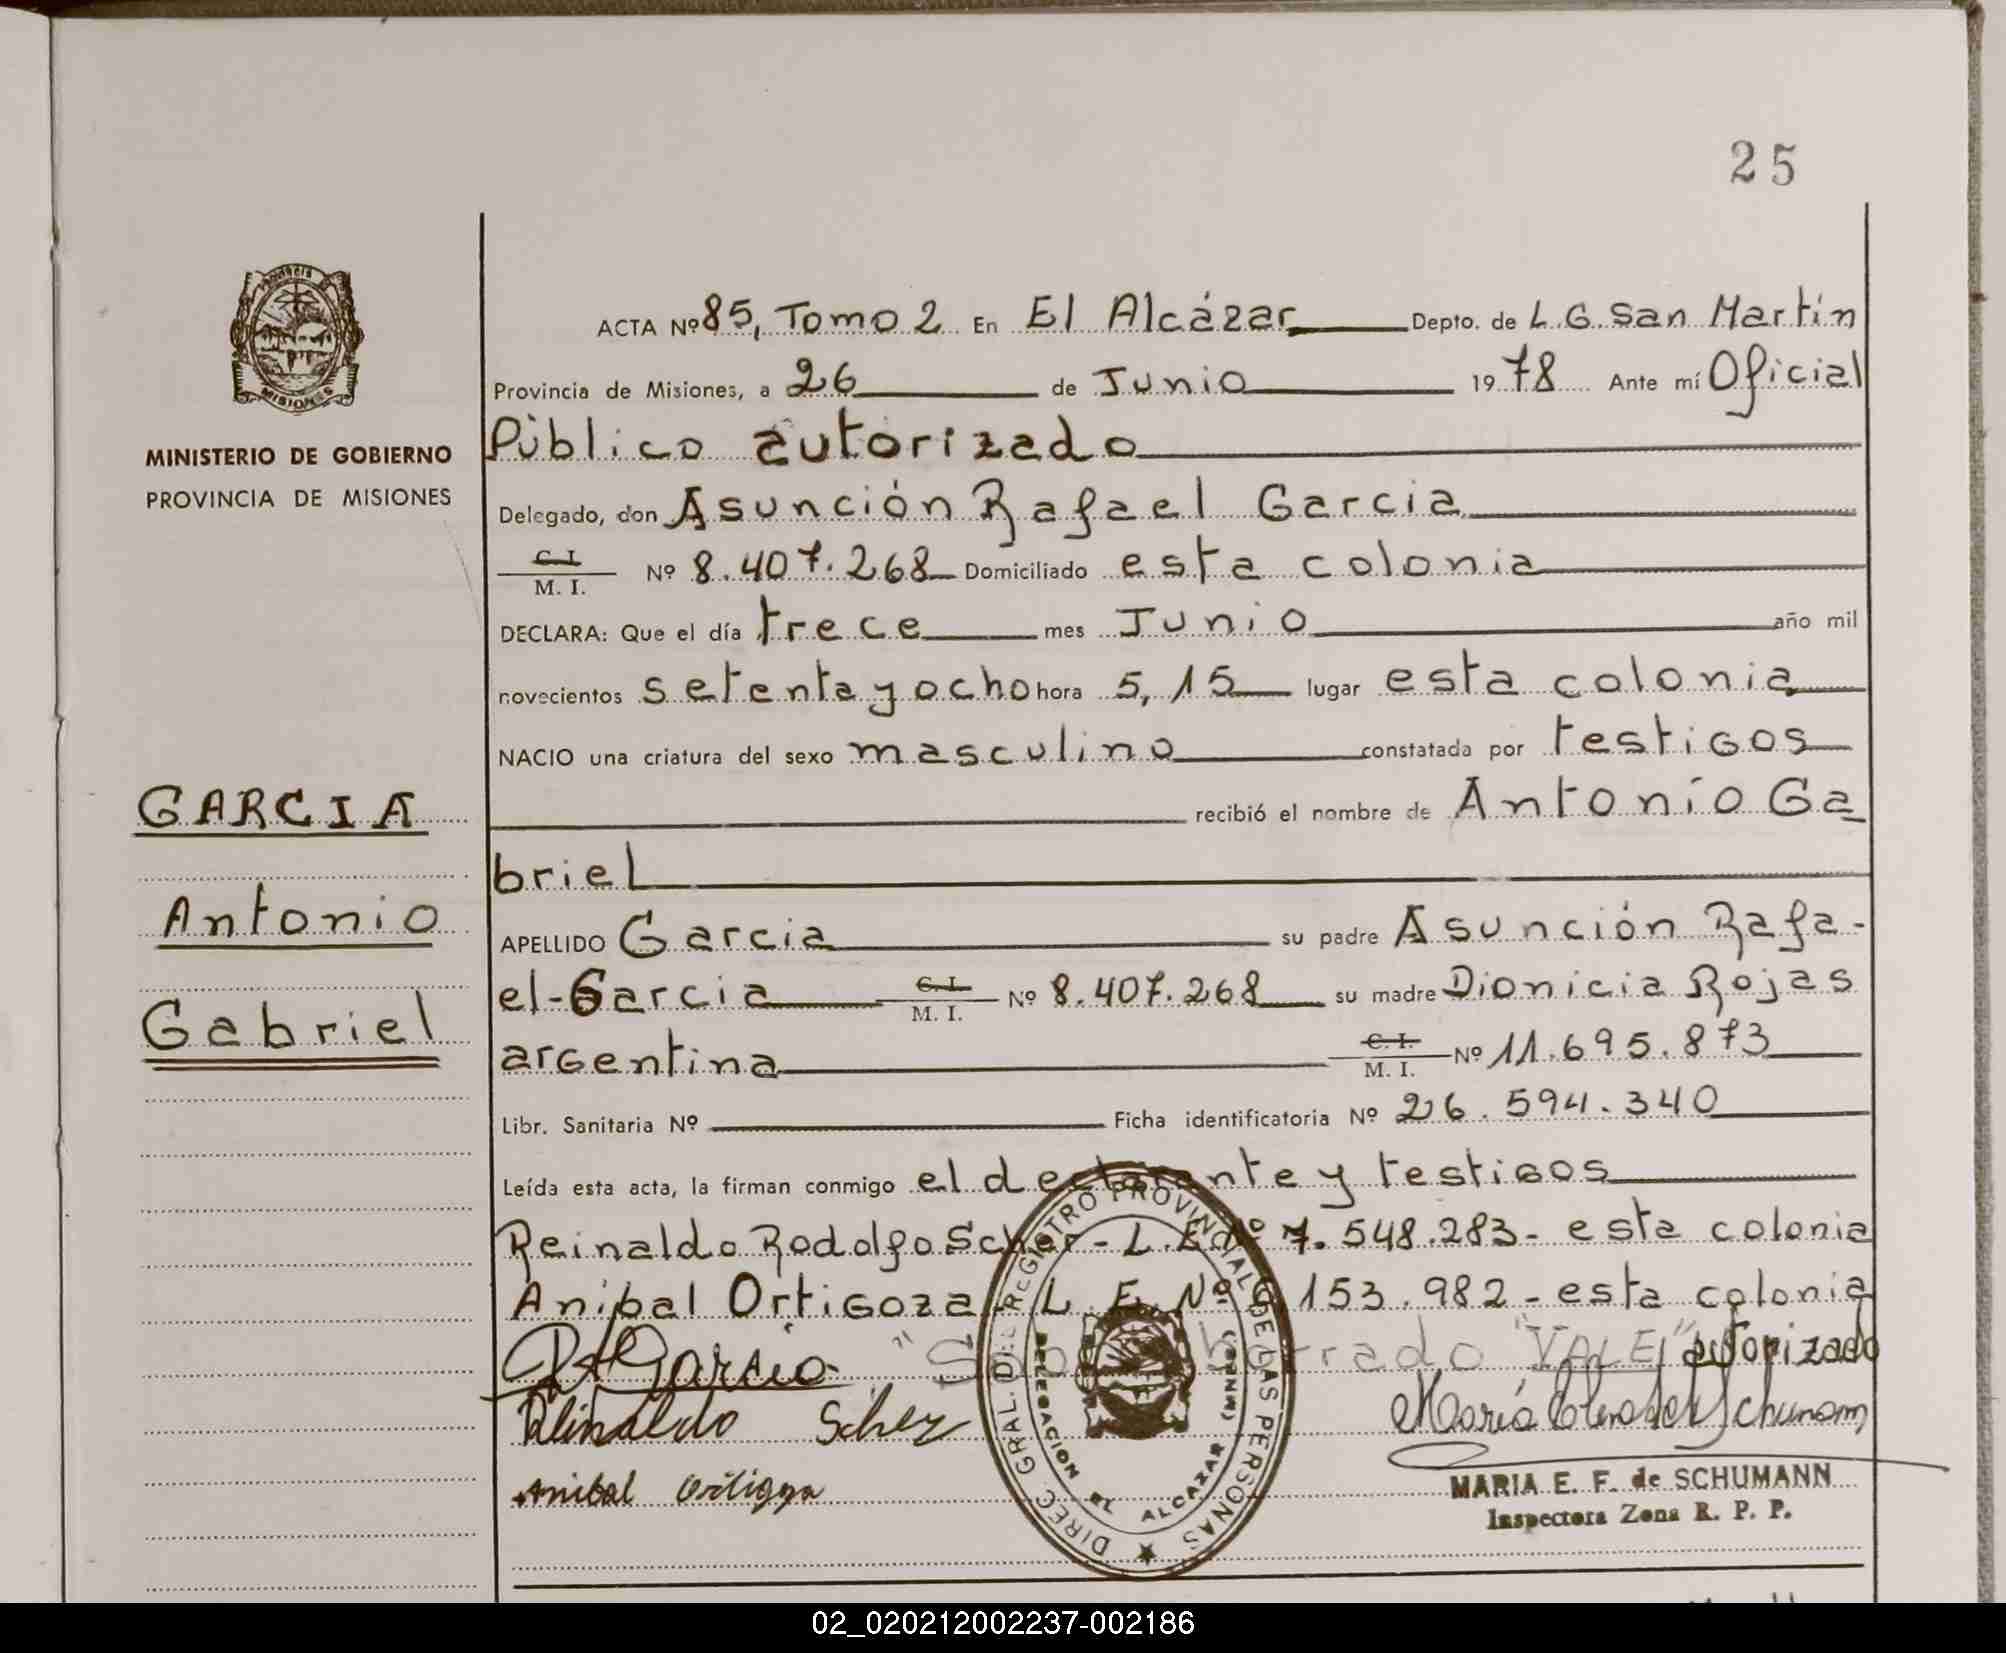 25
ACTA Nº 85, Tomo 2 En El Alcázar Depto. de L. G. San Martín
Provincia de Misiones, a 26 de Junio 1978 Ante mí Oficial
Público autorizado
MINISTERIO DE GOBIERNO
PROVINCIA DE MISIONES
Delegado, don Asunción Rafael Garcia
C. I. M. I. Nº 8.407.268 Domiciliado esta colonia
DECLARA: Que el día trece mes Junio año mil
novecientos setenta y ocho hora 5,15 lugar esta colonia
NACIO una criatura del sexo masculino constatada por testigos
recibió el nombre de Antonio Ga
briel
GARCIA
Antonio
Gabriel
APELLIDO Garcia su padre Asunción Rafa-
el-Garcia C. I. M. I. Nº 8.407.268 su madre Dionicia Rojas
argentina C. I. M. I. Nº 11.695.873
Libr. Sanitaria Nº Ficha identificatoria Nº 26.594.340
Leída esta acta, la firman conmigo el declarante y testigos
Reinaldo Rodolfo Scher - L. E. Nº 7.548.283 - esta colonia
Anibal Ortigoza - L. E. Nº 153.982 - esta colonia
"Sobre borrado "VALE" autorizado
R A Garcia
Reinaldo Scher
Anibal Ortigoza
DIREC. GRAL. DEL REGISTRO PROVINCIAL DE LAS PERSONAS
DELEGACION EL ALCAZAR (MNES)
MARIA E. F. de SCHUMANN
Inspectora Zona R. P. P.
02_020212002237-002186